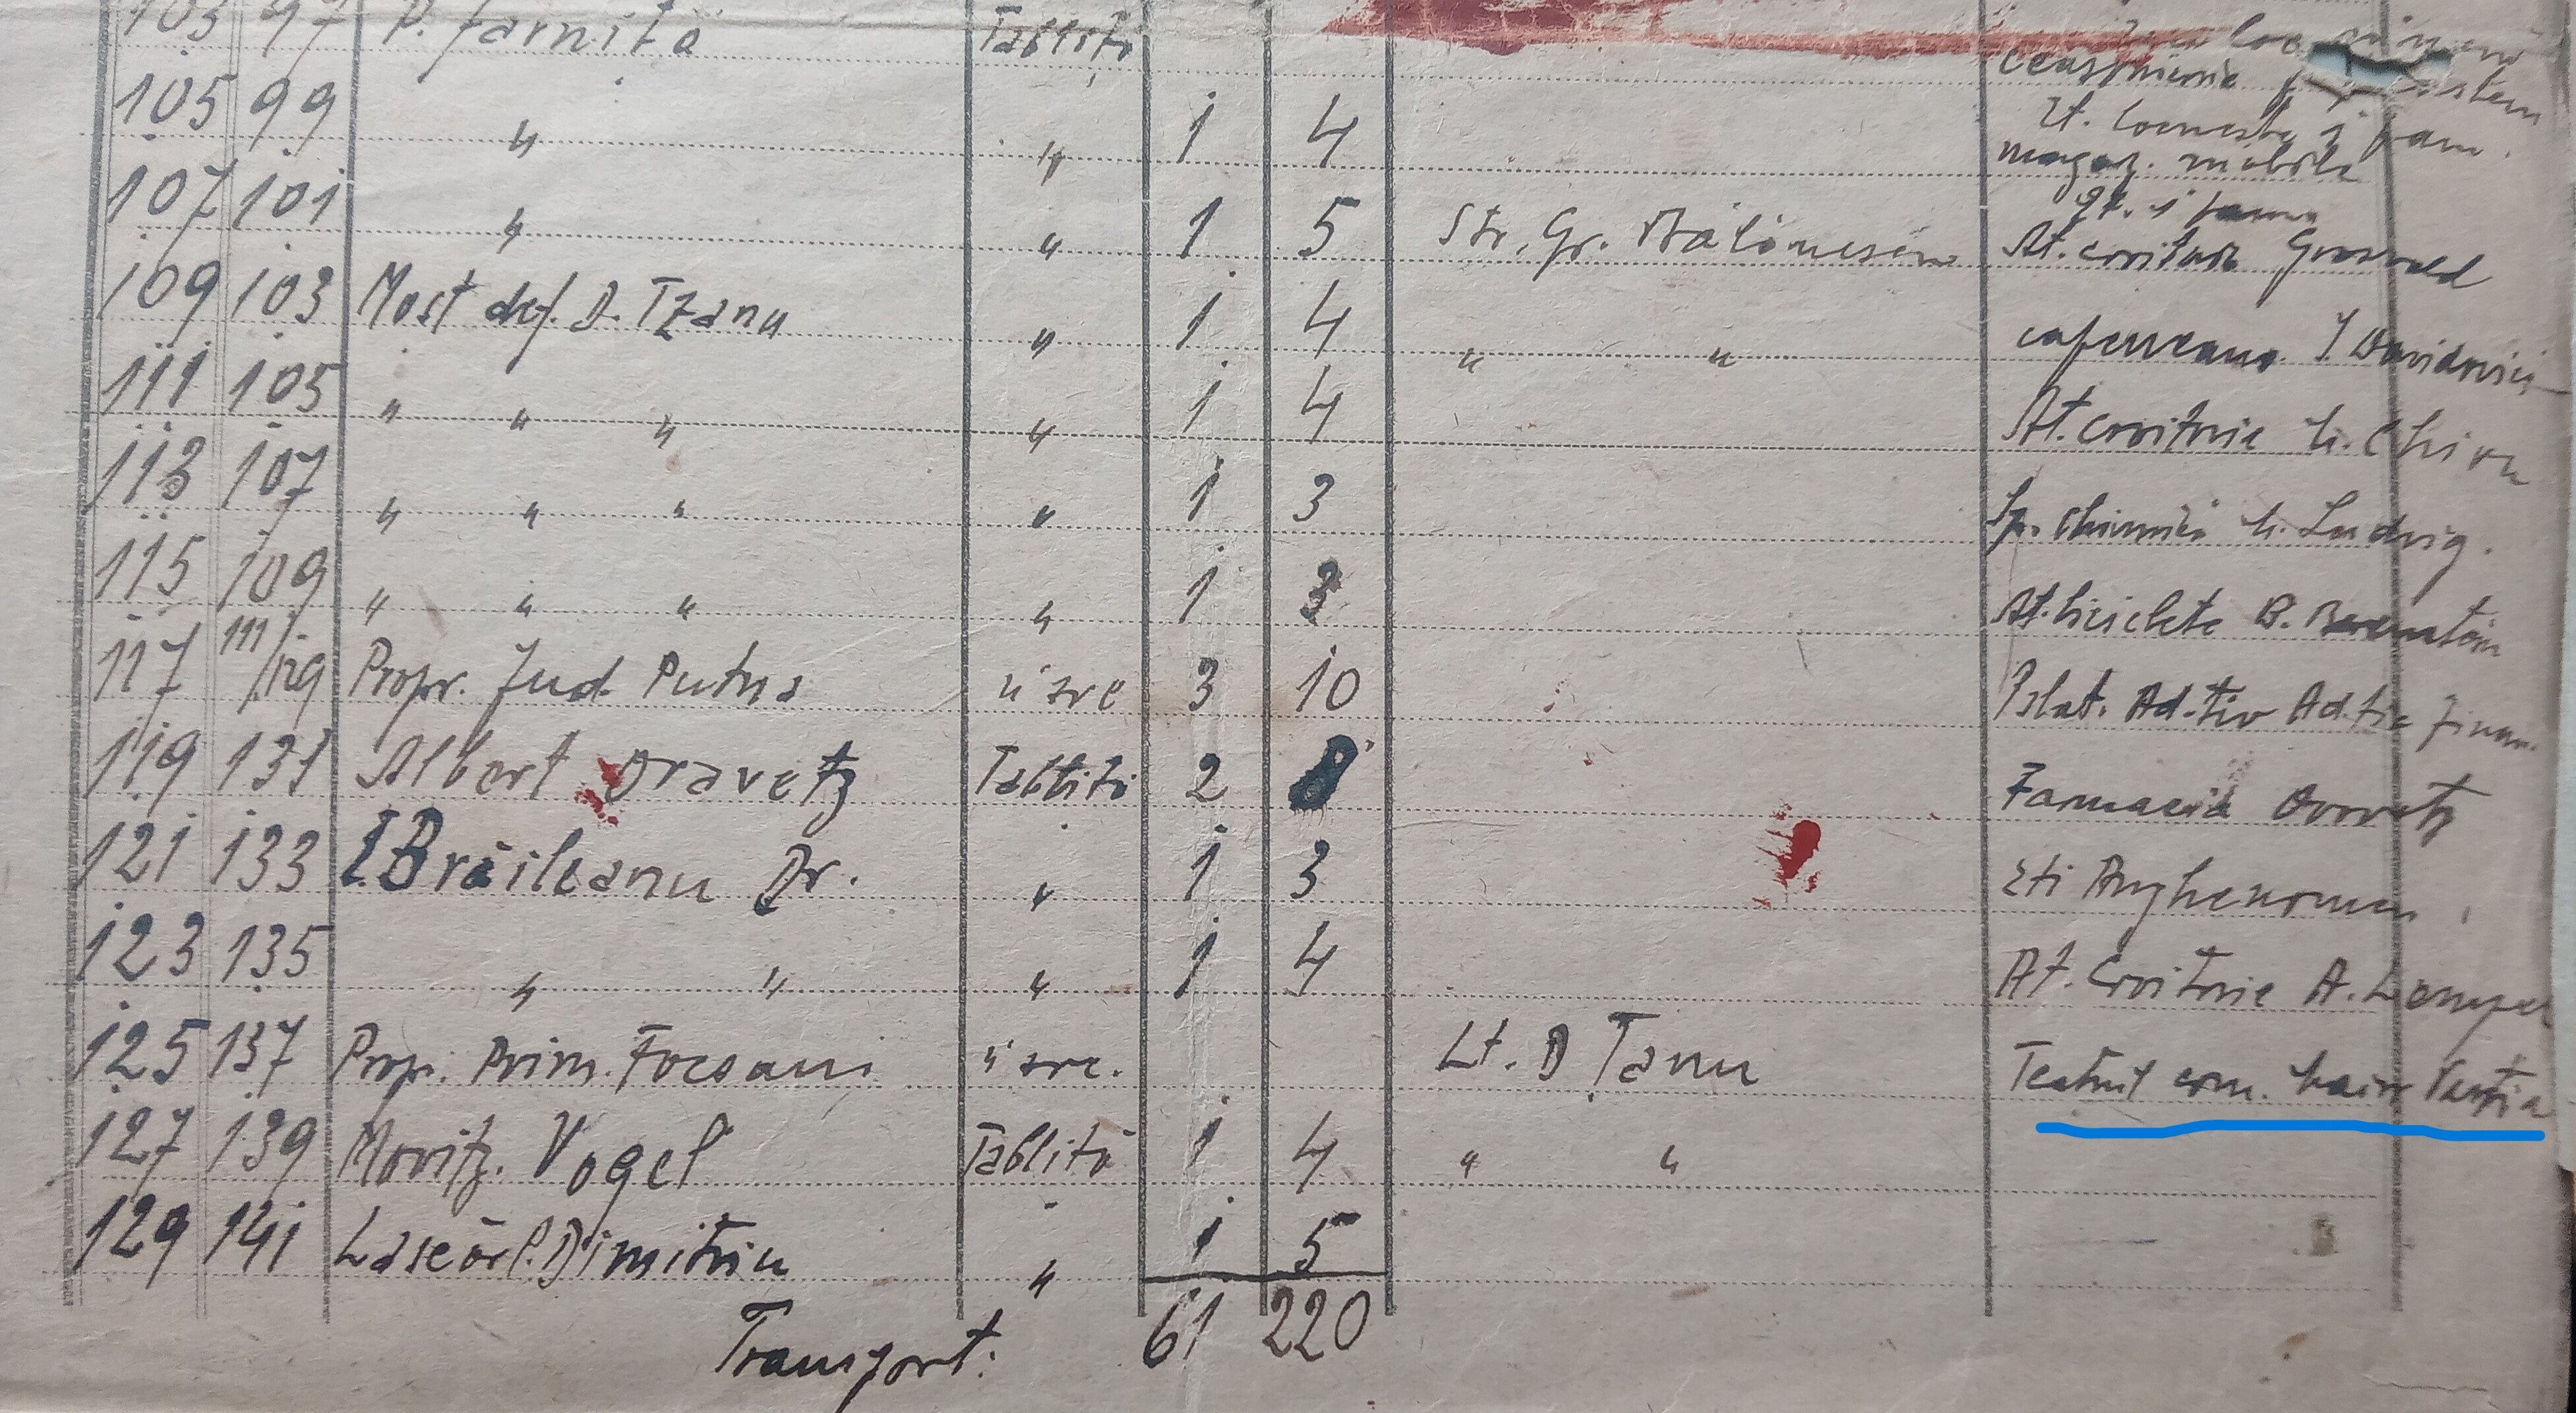 103 97 P. Jarnită Tabliți
ceasornicarie
105 99 " " 1 4 magaz. mobile
107 101 " " 1 5 Str. Gr. Bălănescu At. croitorie Grosvald
109 103 Moșt def. D. Tzanu " 1 4 " " cafeneaua I Davidovici
111 105 " " " " 1 4 At. croitorie h. Chiru
113 107 " " " " 1 3 h. Ludvig.
115 109 " " " " 1 3 At. biciclete B.
117 111/129 Propr. Jud. Putna n'are 3 10 Palat. Ad.tiv Ad.tia Finan.
119 131 Albert Oravetz Tabliti 2 8 Farmacia Oravetz
121 133 I. Brăileanu Dr. " 1 3
123 135 " " " 1 4 At. Croitorie A.
125 137 Propr. Prim. Focsani n'are. Lt. D Tanu Teatrul com. Pastia
127 139 Moritz. Vogel Tabliti 1 4 " "
129 141 Lascăr C. Dimitriu " 1 5
Transport: 61 220